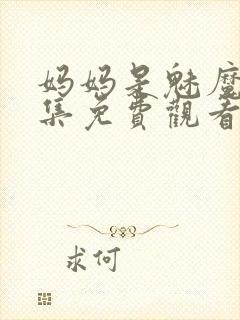 妈妈是魅魔
集免費觀看
求何